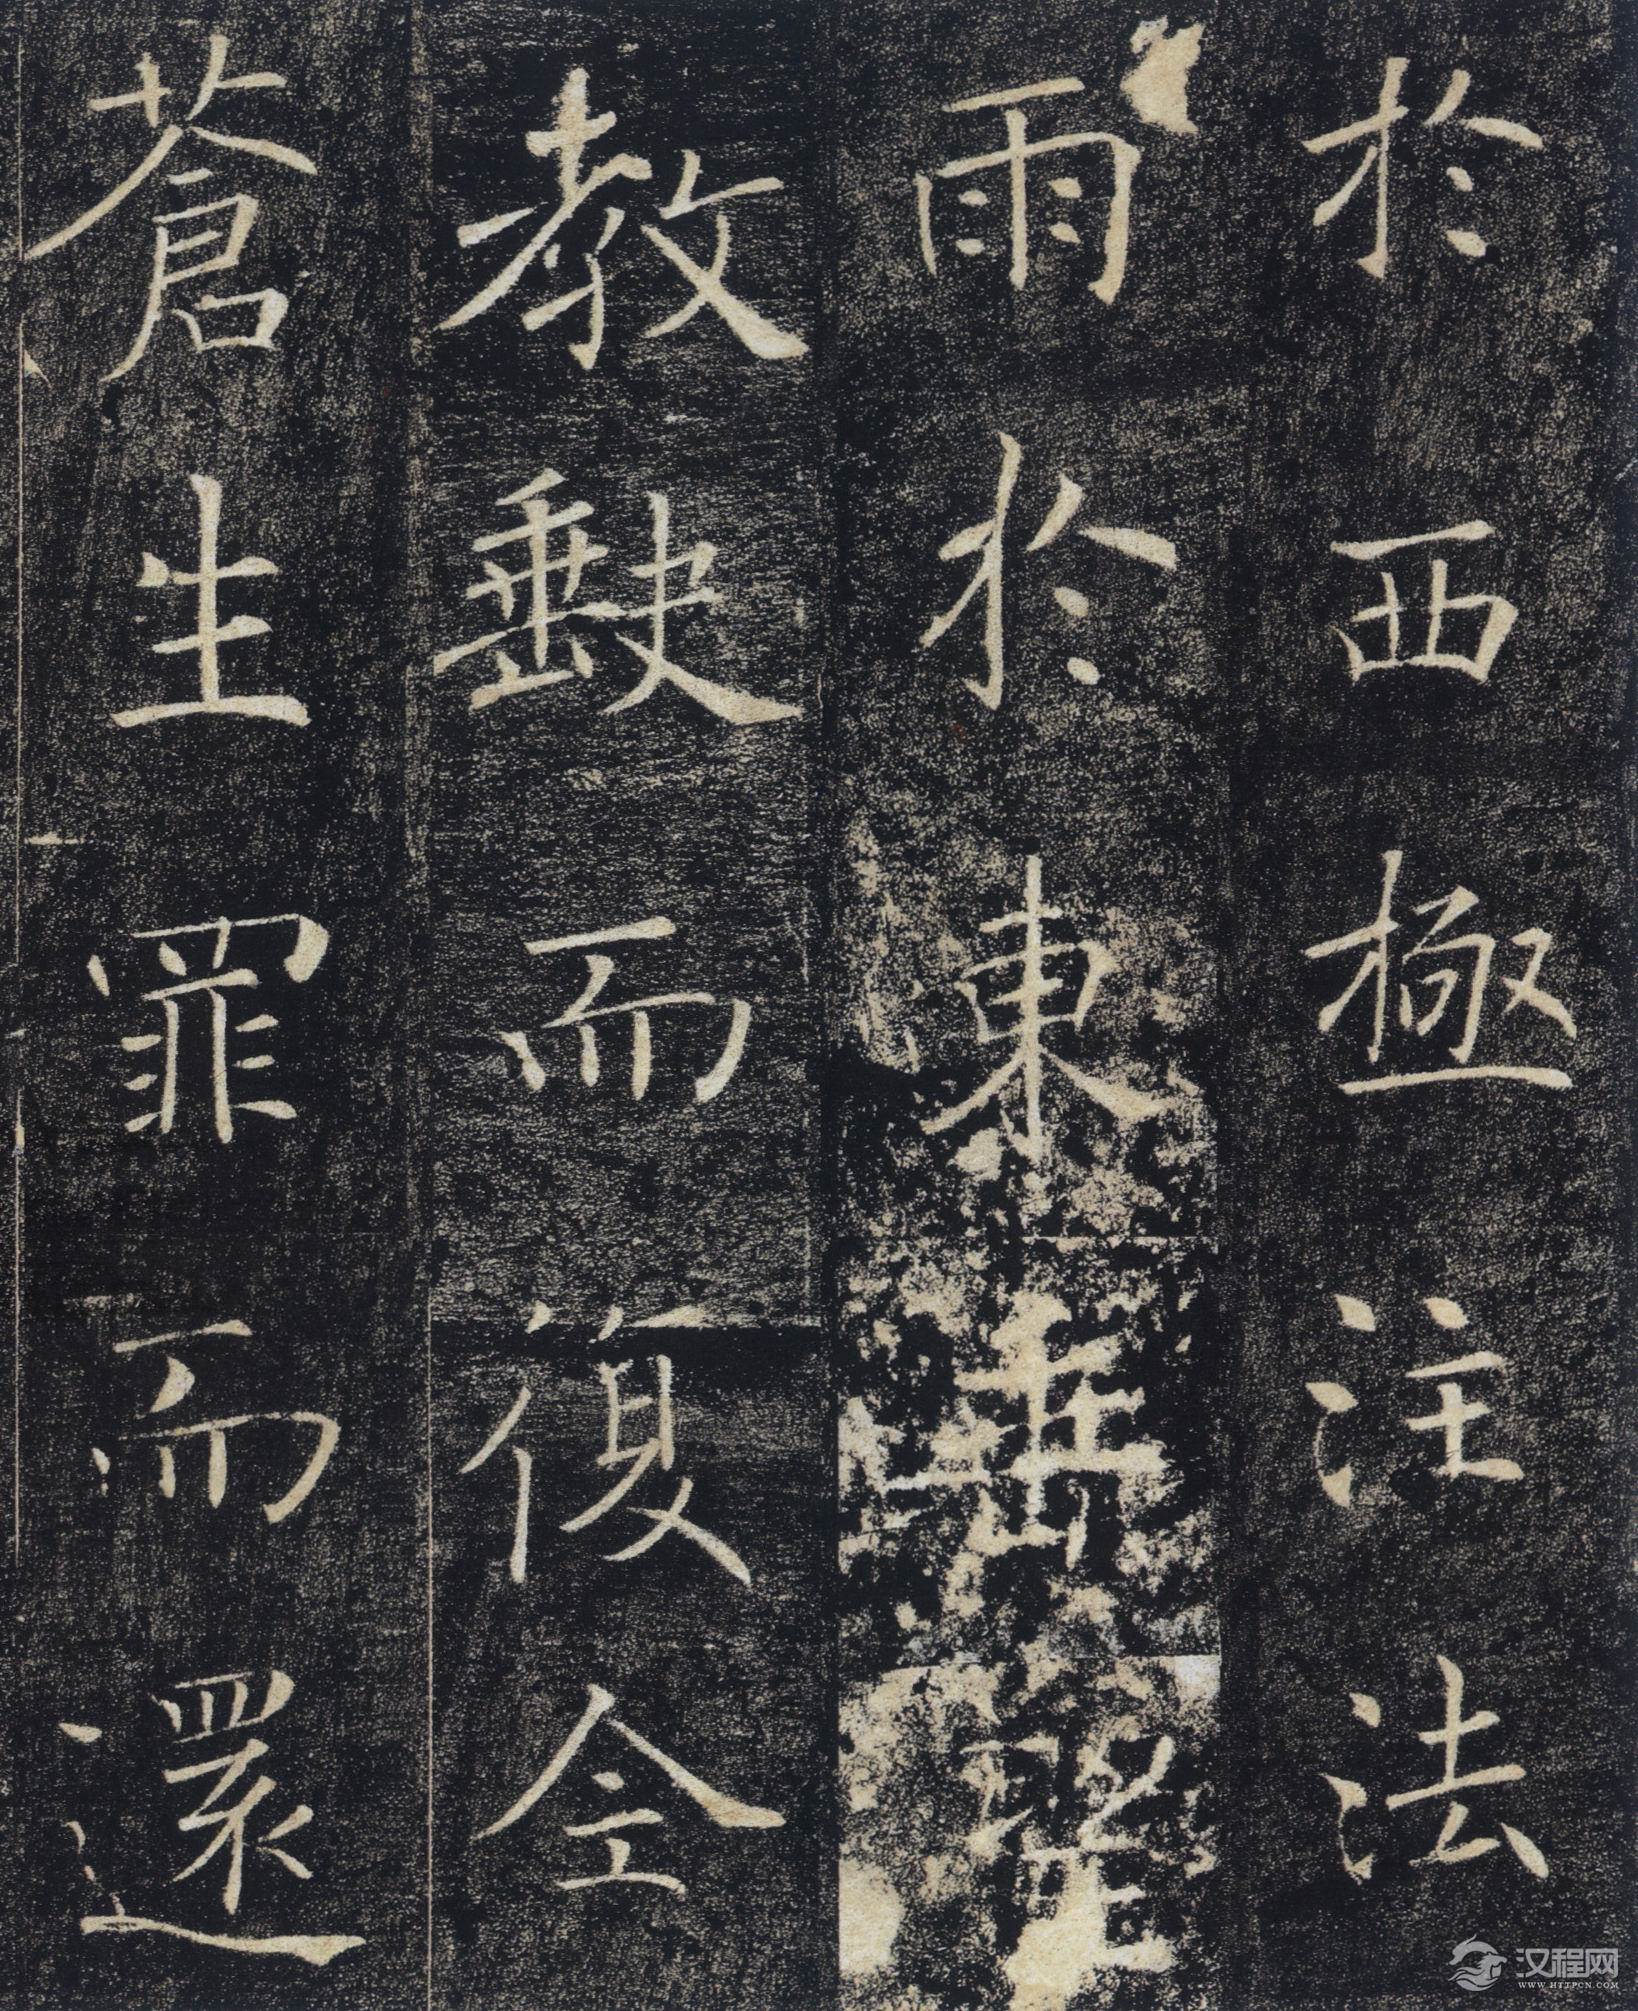 於西極注法
雨於東垂聖
教缺而復全
蒼生罪而還
汉程网
WWW.HTTPCN.COM